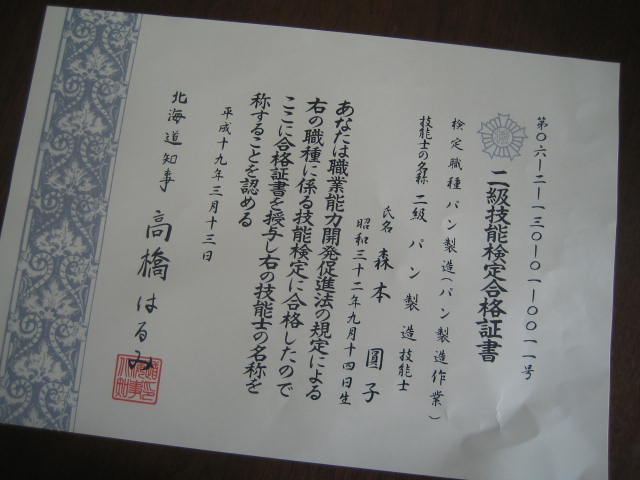 第〇六一二一一三〇一〇〇一一号
二級技能検定合格証書
検定職種 パン製造(パン製造作業)
技能士の名称 二級パン製造技能士
氏名 森本園子
昭和三十二年九月十四日生
あなたは職業能力開発促進法の規定による
右の職種に係る技能検定に合格したので
ここに合格証書を授与し右の技能士の名称を
称することを認める
平成十九年三月十三日
北海道知事 高橋はるみ